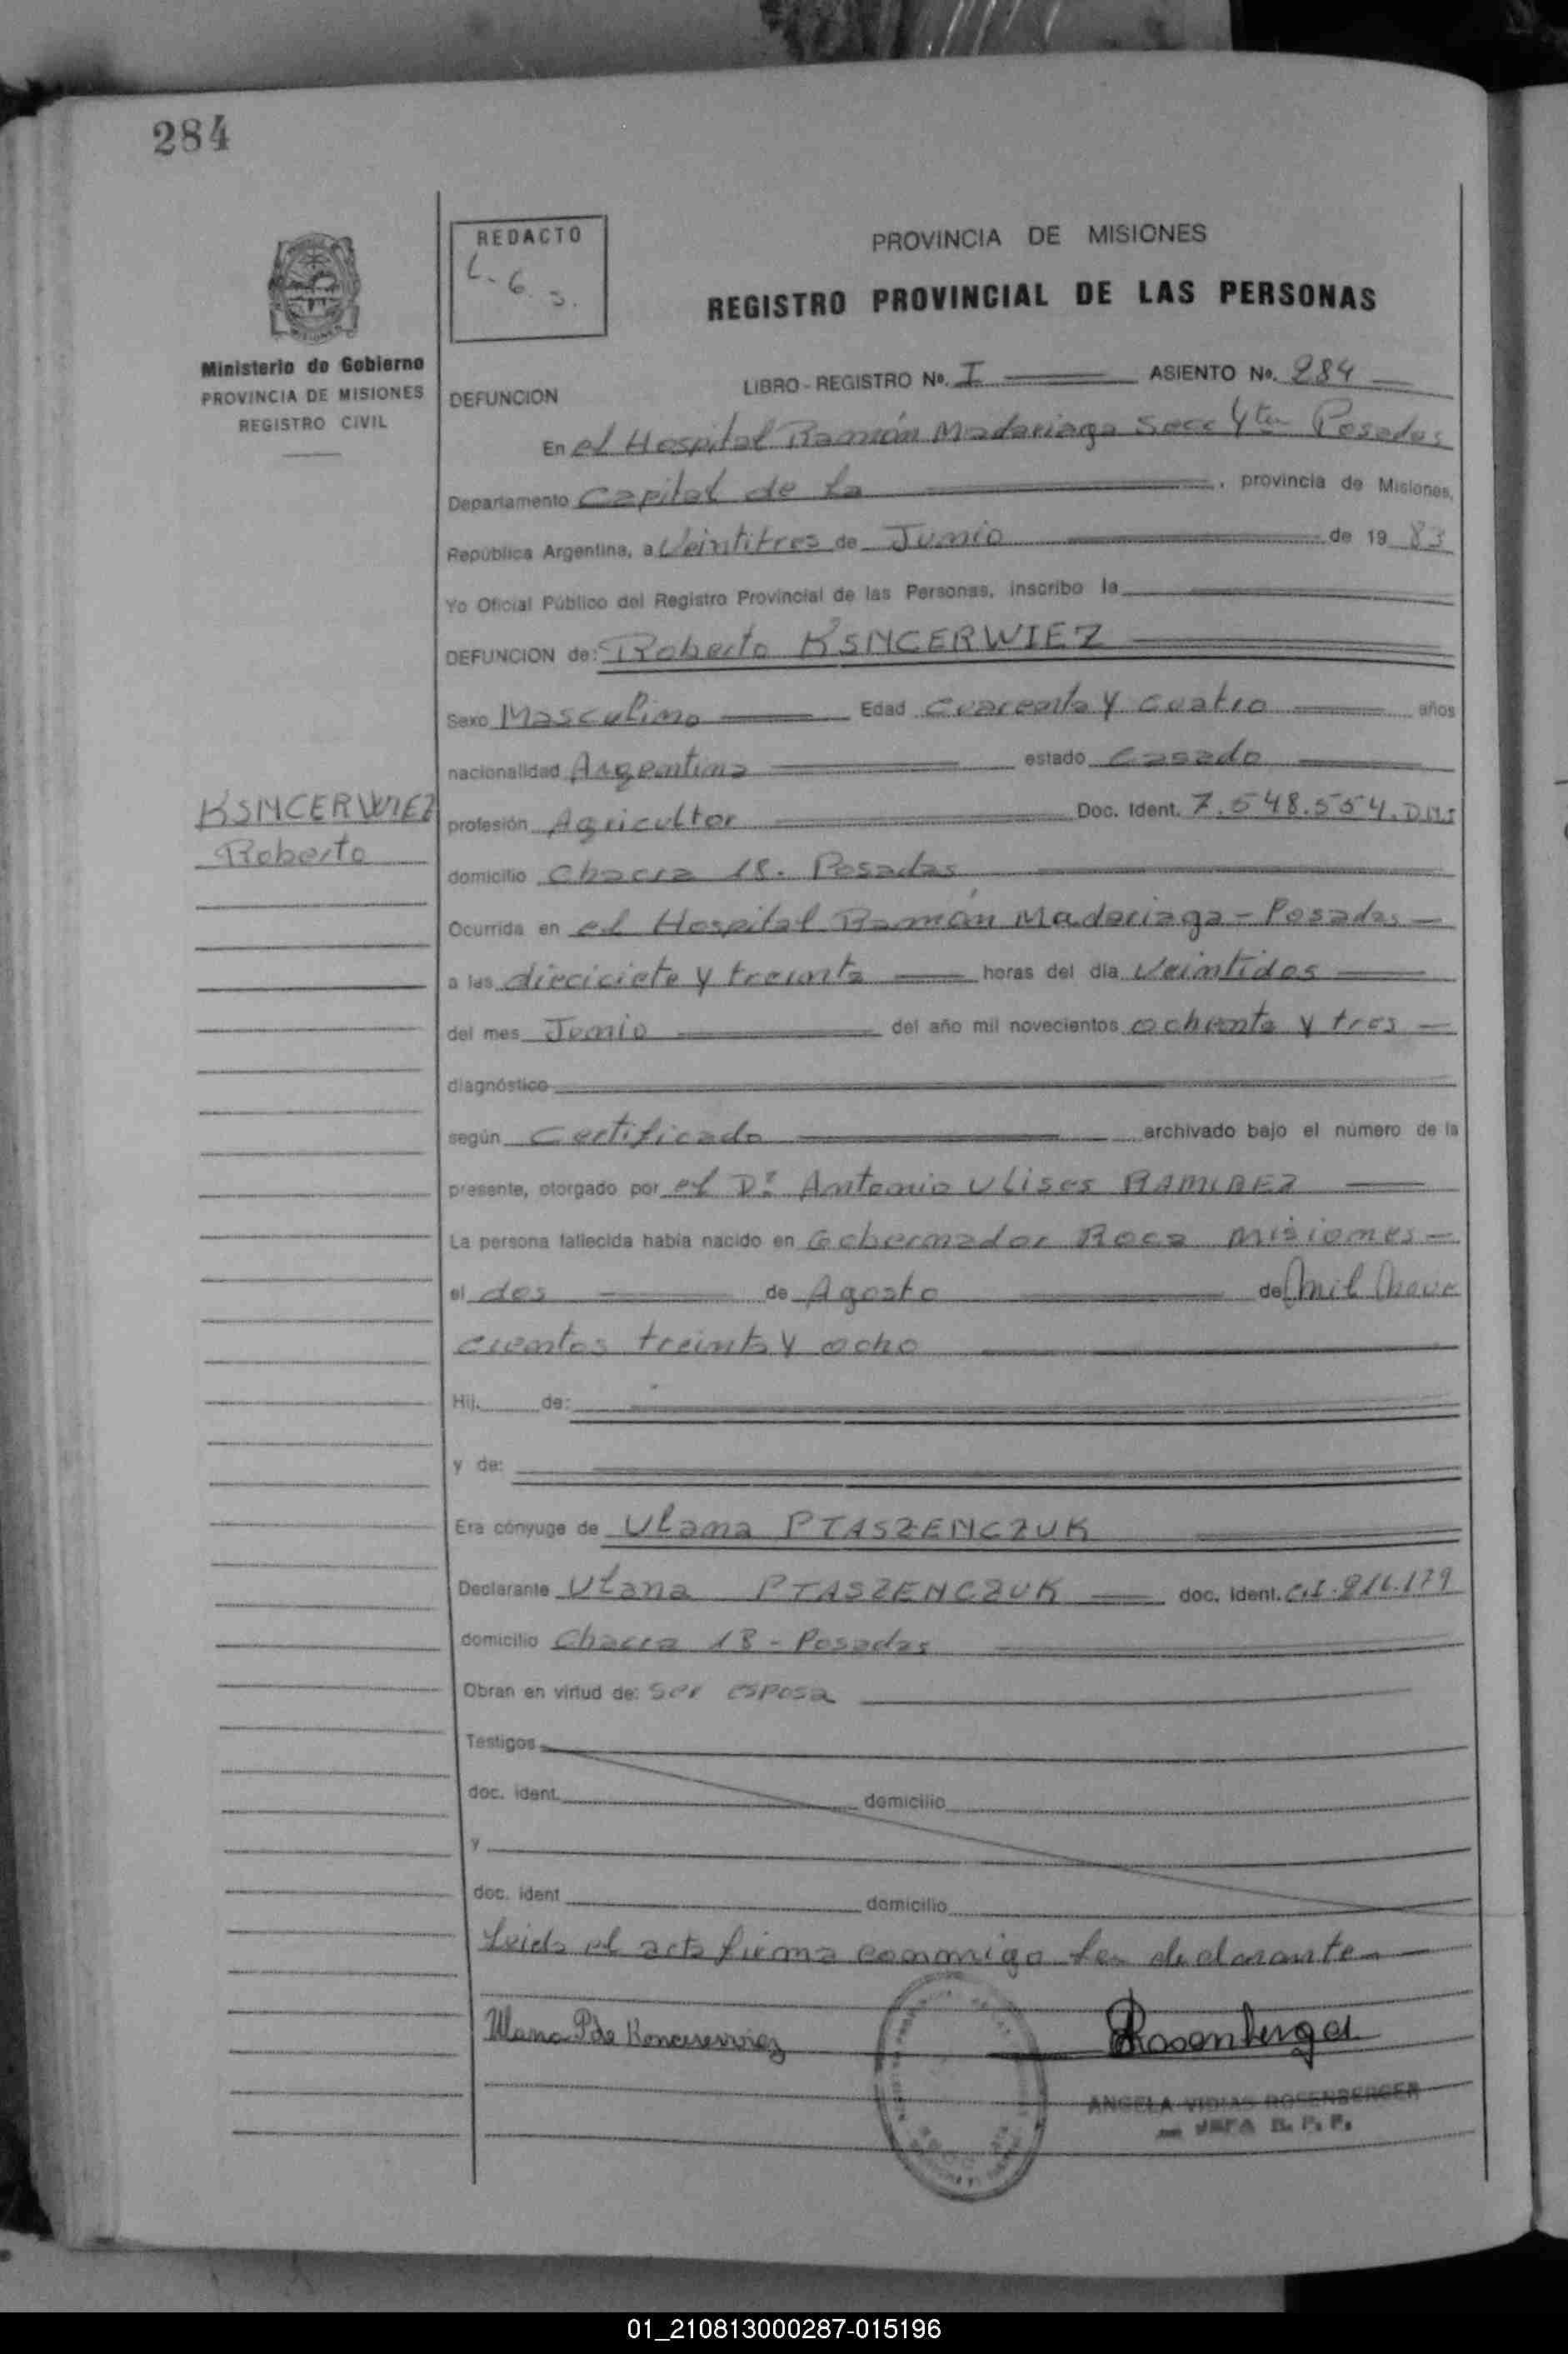 284
REDACTO
L. G. S.
PROVINCIA DE MISIONES
REGISTRO PROVINCIAL DE LAS PERSONAS
Ministerio de Gobierno
PROVINCIA DE MISIONES
REGISTRO CIVIL
DEFUNCION
LIBRO - REGISTRO No. I ASIENTO No. 284
En el Hospital Ramón Madariaga Secc 4ta Posadas
Departamento Capital de la , provincia de Misiones,
República Argentina, a Veintitres de Junio de 19 83
Yo Oficial Público del Registro Provincial de las Personas, inscribo la
DEFUNCION de: Roberto KSNCERWIEZ
Sexo Masculino Edad Cuarenta y cuatro años
nacionalidad Argentina estado Casado
KSNCERWIEZ
Roberto
profesión Agricultor Doc. Ident. 7.548.554. DNI
domicilio Chacra 18. Posadas
Ocurrida en el Hospital Ramón Madariaga - Posadas -
a las dieciciete y treinta horas del día Veintidos
del mes Junio del año mil novecientos ochenta y tres -
diagnóstico
según Certificado archivado bajo el número de la
presente, otorgado por el Dr. Antonio Ulises RAMIREZ
La persona fallecida había nacido en Gobernador Roca Misiones -
el dos de Agosto de Mil Nove
cientos treinta y ocho
Hij. de:
y de:
Era cónyuge de Ulana PTASZENCZUK
Declarante Ulana PTASZENCZUK doc. ident. C.I. 216.179
domicilio Chacra 18 - Posadas
Obran en virtud de: Ser esposa
Testigos
doc. ident. domicilio
y
doc. ident domicilio
Leida el acta firma conmigo la declarante -
Ulana P de
Rosenberger
ANGELA VIDIAS ROSENBERGER
JEFA R. P. P.
01_210813000287-015196